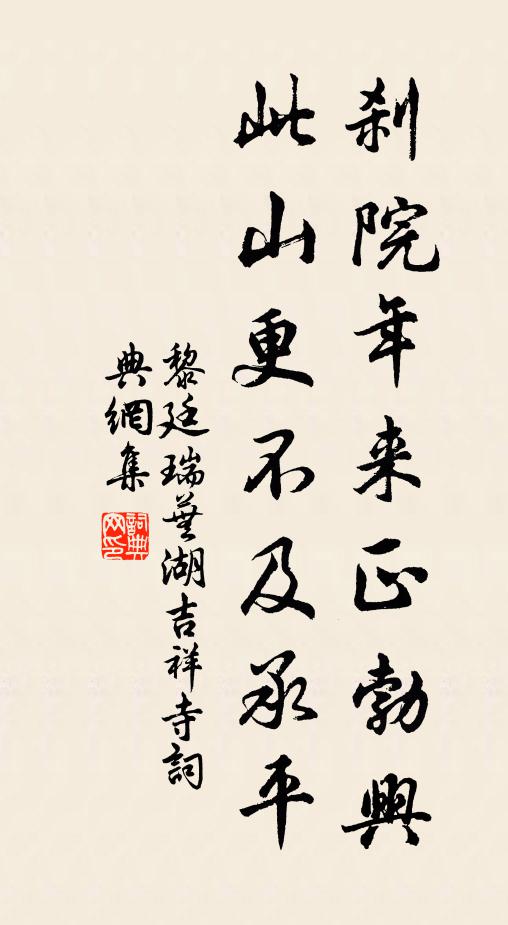 刹院年来正勃興
此山更不及承平
黎廷瑞蕪湖吉祥寺詞
典網集
詞典網印